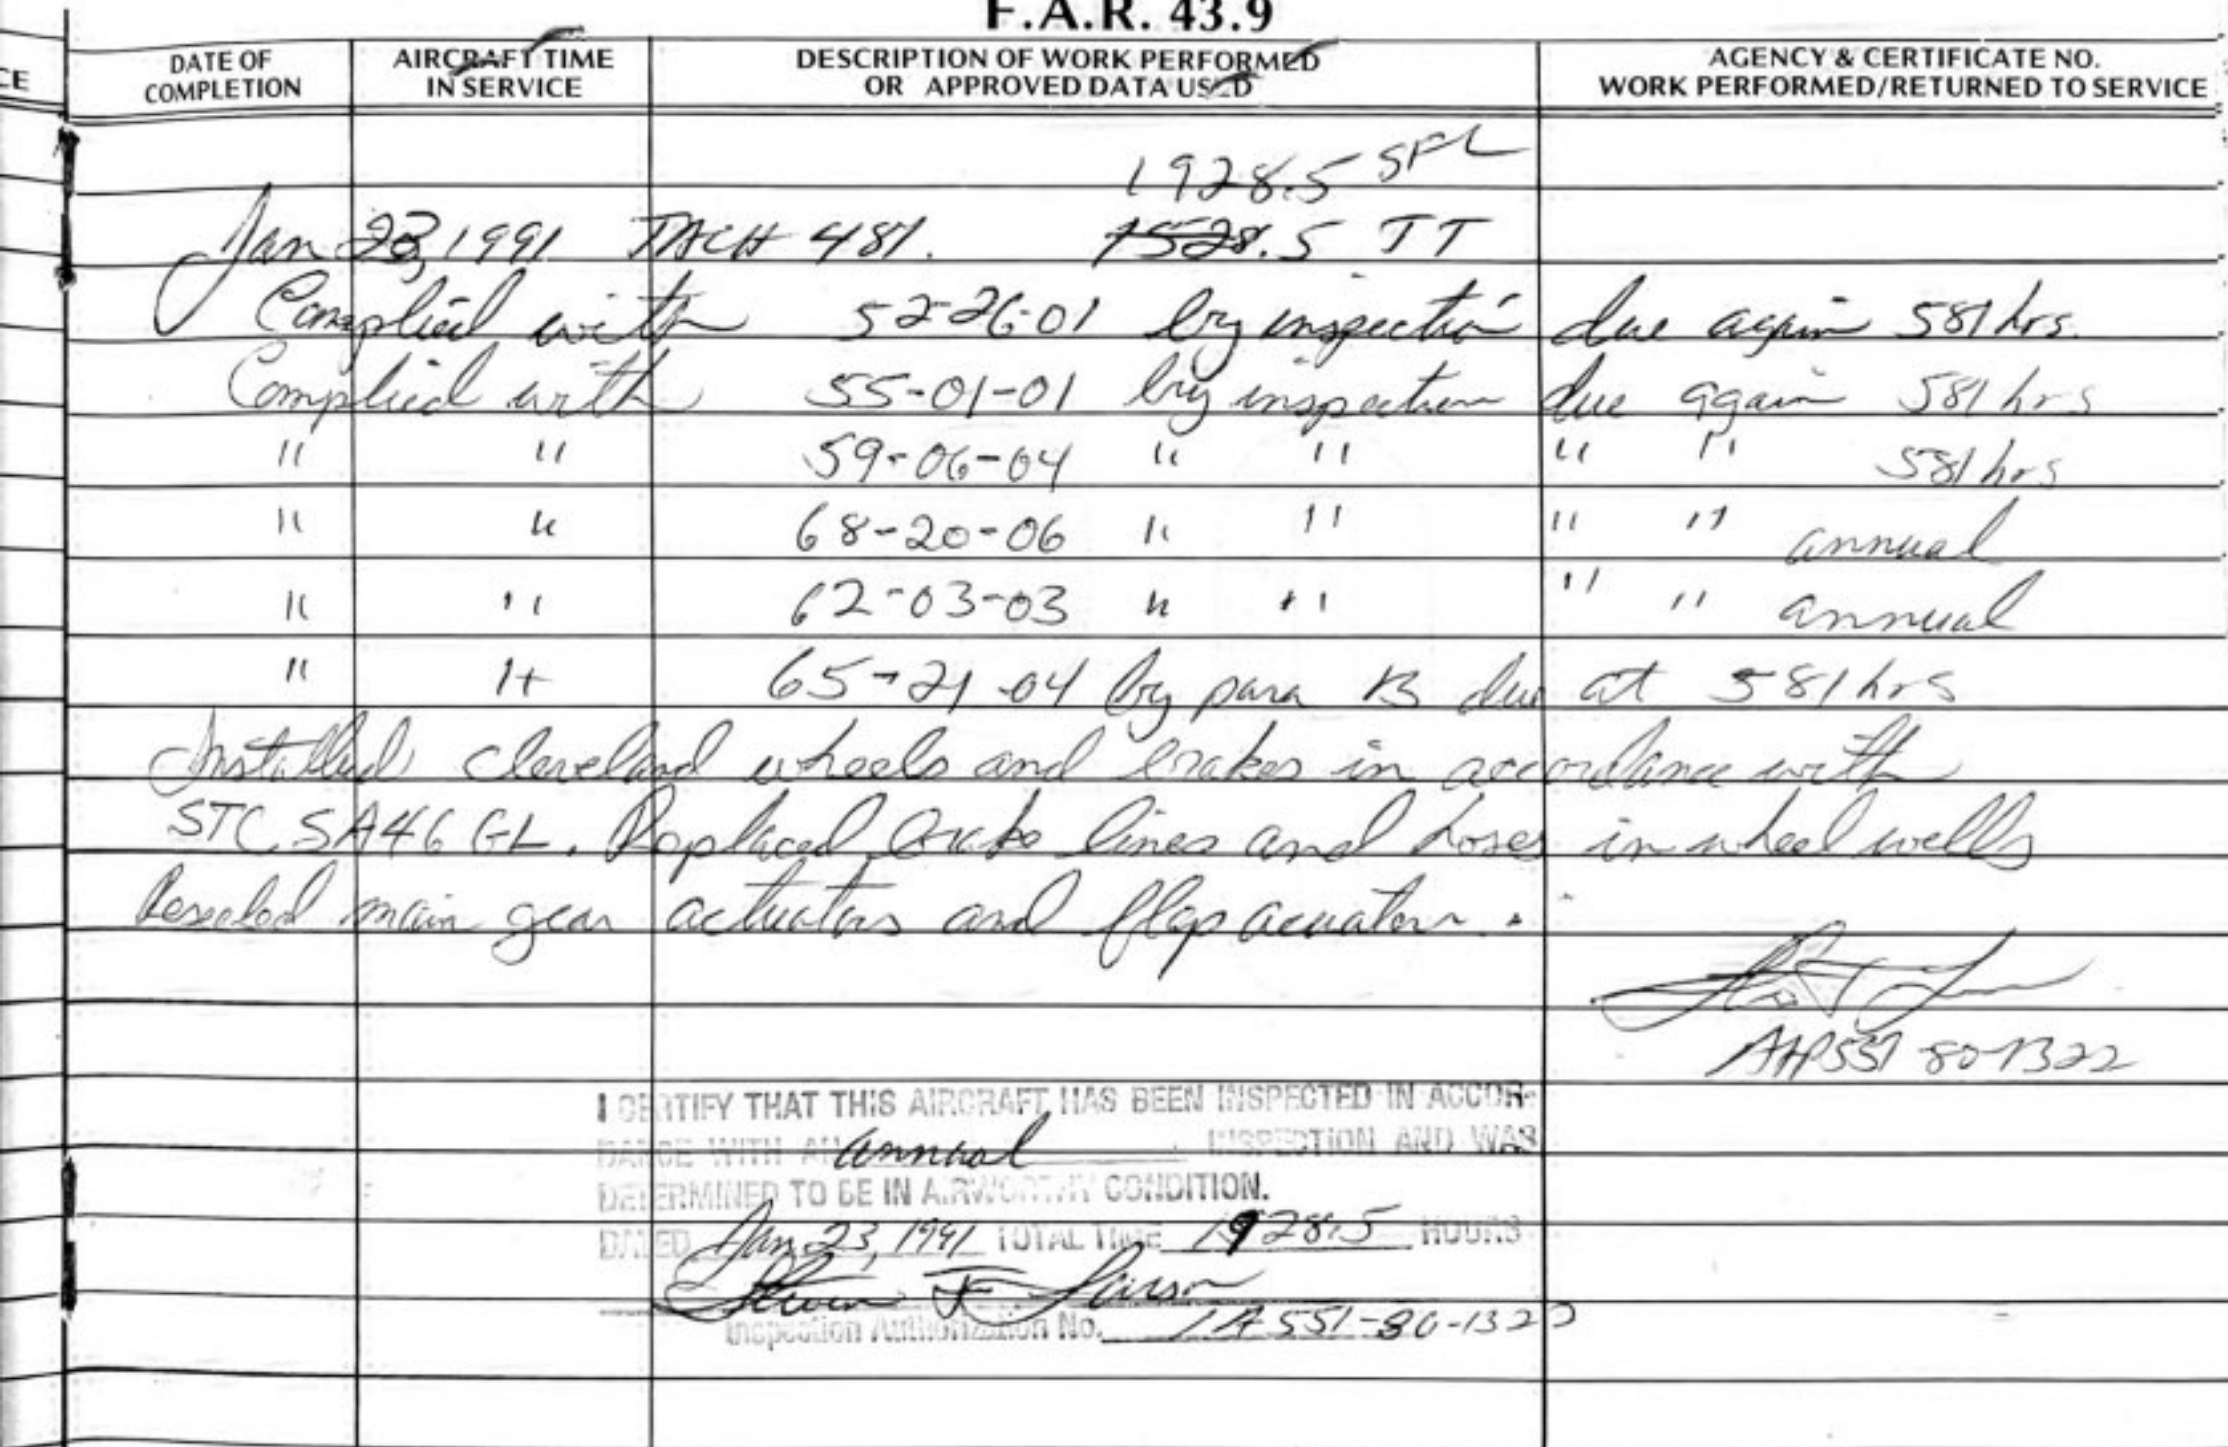 F.A.R. 43.9
CE
DATE OF COMPLETION
AIRCRAFT TIME IN SERVICE
DESCRIPTION OF WORK PERFORMED OR APPROVED DATA USED
AGENCY & CERTIFICATE NO. WORK PERFORMED/RETURNED TO SERVICE
1928.5 SFL
Jan 23, 1991 TACH 481. 1528.5 TT
Complied with 52-26-01 by inspection due again 581 hrs.
Complied with 55-01-01 by inspection due again 581 hrs
" " 59-06-04 " " " " 581 hrs
" " 68-20-06 " " " " annual
" " 62-03-03 " " " " annual
" " 65-21-04 by para B due at 581 hrs
Installed cleveland wheels and brakes in accordance with
STC SA46GL. Replaced brake lines and hoses in wheel wells
Resealed main gear actuators and flap acuator.
551-80-1322
I CERTIFY THAT THIS AIRCRAFT HAS BEEN INSPECTED IN ACCOR-
DANCE WITH AN annual INSPECTION AND WAS
DETERMINED TO BE IN AIRWORTHY CONDITION.
DATED Jan 23, 1991 TOTAL TIME 1928.5 HOURS
Steven F Larson
Inspection Authorization No. IA 551-80-1322